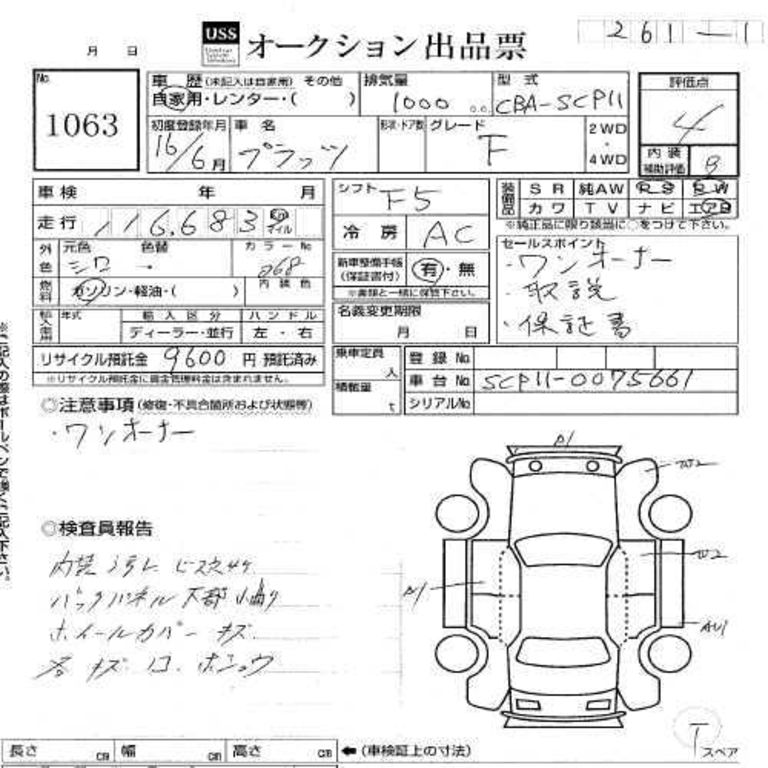 261-1
月 日 USS オークション出品票
No. 1063
車歴(未記入は自家用) その他
自家用・レンタカー・( )
排気量 1000 cc
型式 CBA-SCP11
評価点 4
初度登録年月 16/6月
車名 プラッツ
形状・ドア数
グレード F
2WD・4WD
内装補助評価 B
車検 年 月
走行 116,683 km マイル
外色 元色 シロ 色替 - カラーNo 068
燃料 ガソリン・軽油・( ) 内装色
輸入車用 年式 輸入区分 ディーラー・並行 ハンドル 左・右
リサイクル預託金 9600 円 預託済み
※リサイクル預託金に資金管理料金は含まれません。
シフト F5
冷房 AC
新車整備手帳(保証書付) 有・無
※書類と一緒に保管下さい。
名義変更期限
月 日
乗車定員 人
積載量 t
装備品 SR 純AW PS PW
カワ TV ナビ エアB
※純正品に限り該当に○をつけて下さい。
セールスポイント
・ワンオーナー
・取説
・保証書
登録No.
車台No. SCP11-0075661
シリアルNo.
◎注意事項(修復・不具合箇所および状態等)
・ワンオーナー
◎検査員報告
内装ヨゴレ ビス穴
バックパネル下部小曲り
ホイールカバーキズ
各キズ凹
A1
W2
W2
A1
AU1
T スペア
長さ cm 幅 cm 高さ cm ←(車検証上の寸法)